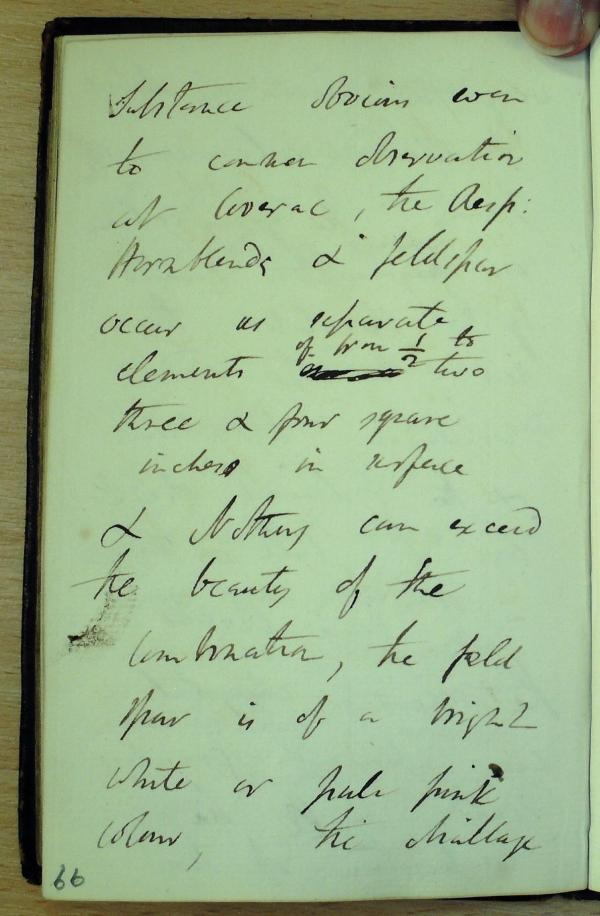 Substance obvious even
to common observation
at Coverac, the Resp:
Hornblende & feldspar
occur as separate
of from ½ to
elements two
three & four square
inches in surface
& Nothing can exceed
the beauty of the
combination, the feld
spar is of a bright
white or pale pink
colour, the diallage
66